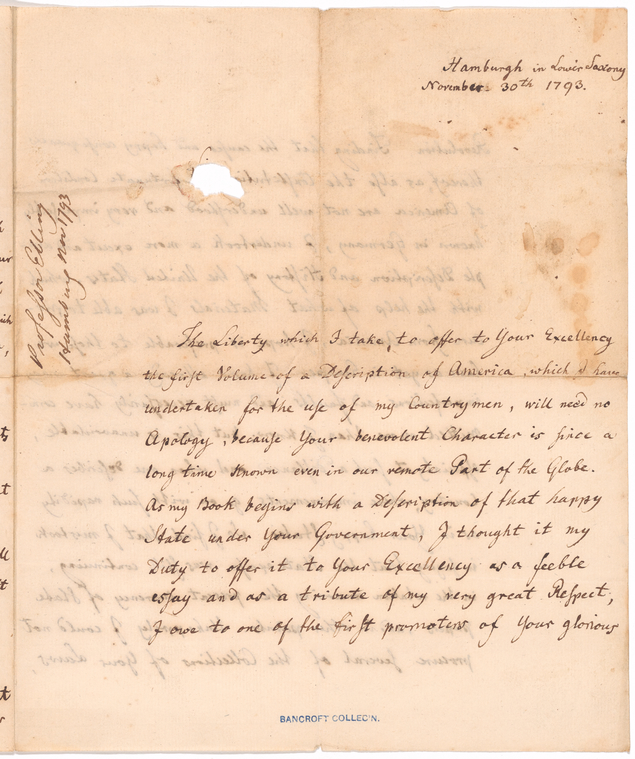 Hamburgh in Lower Saxony
November 30th 1793.
Professor Elling
Hamburg Nov 1793
The Liberty which I take, to offer to Your Excellency
the first Volume of a Description of America, which I have
undertaken for the use of my Countrymen, will need no
Apology, because Your benevolent Character is since a
long time known even in our remote Part of the Globe.
As my Book begins with a Description of that happy
State under Your Government, I thought it my
Duty to offer it to Your Excellency as a feeble
essay and as a tribute of my very great Respect,
I owe to one of the first promoters of Your glorious
BANCROFT COLLEC'N.